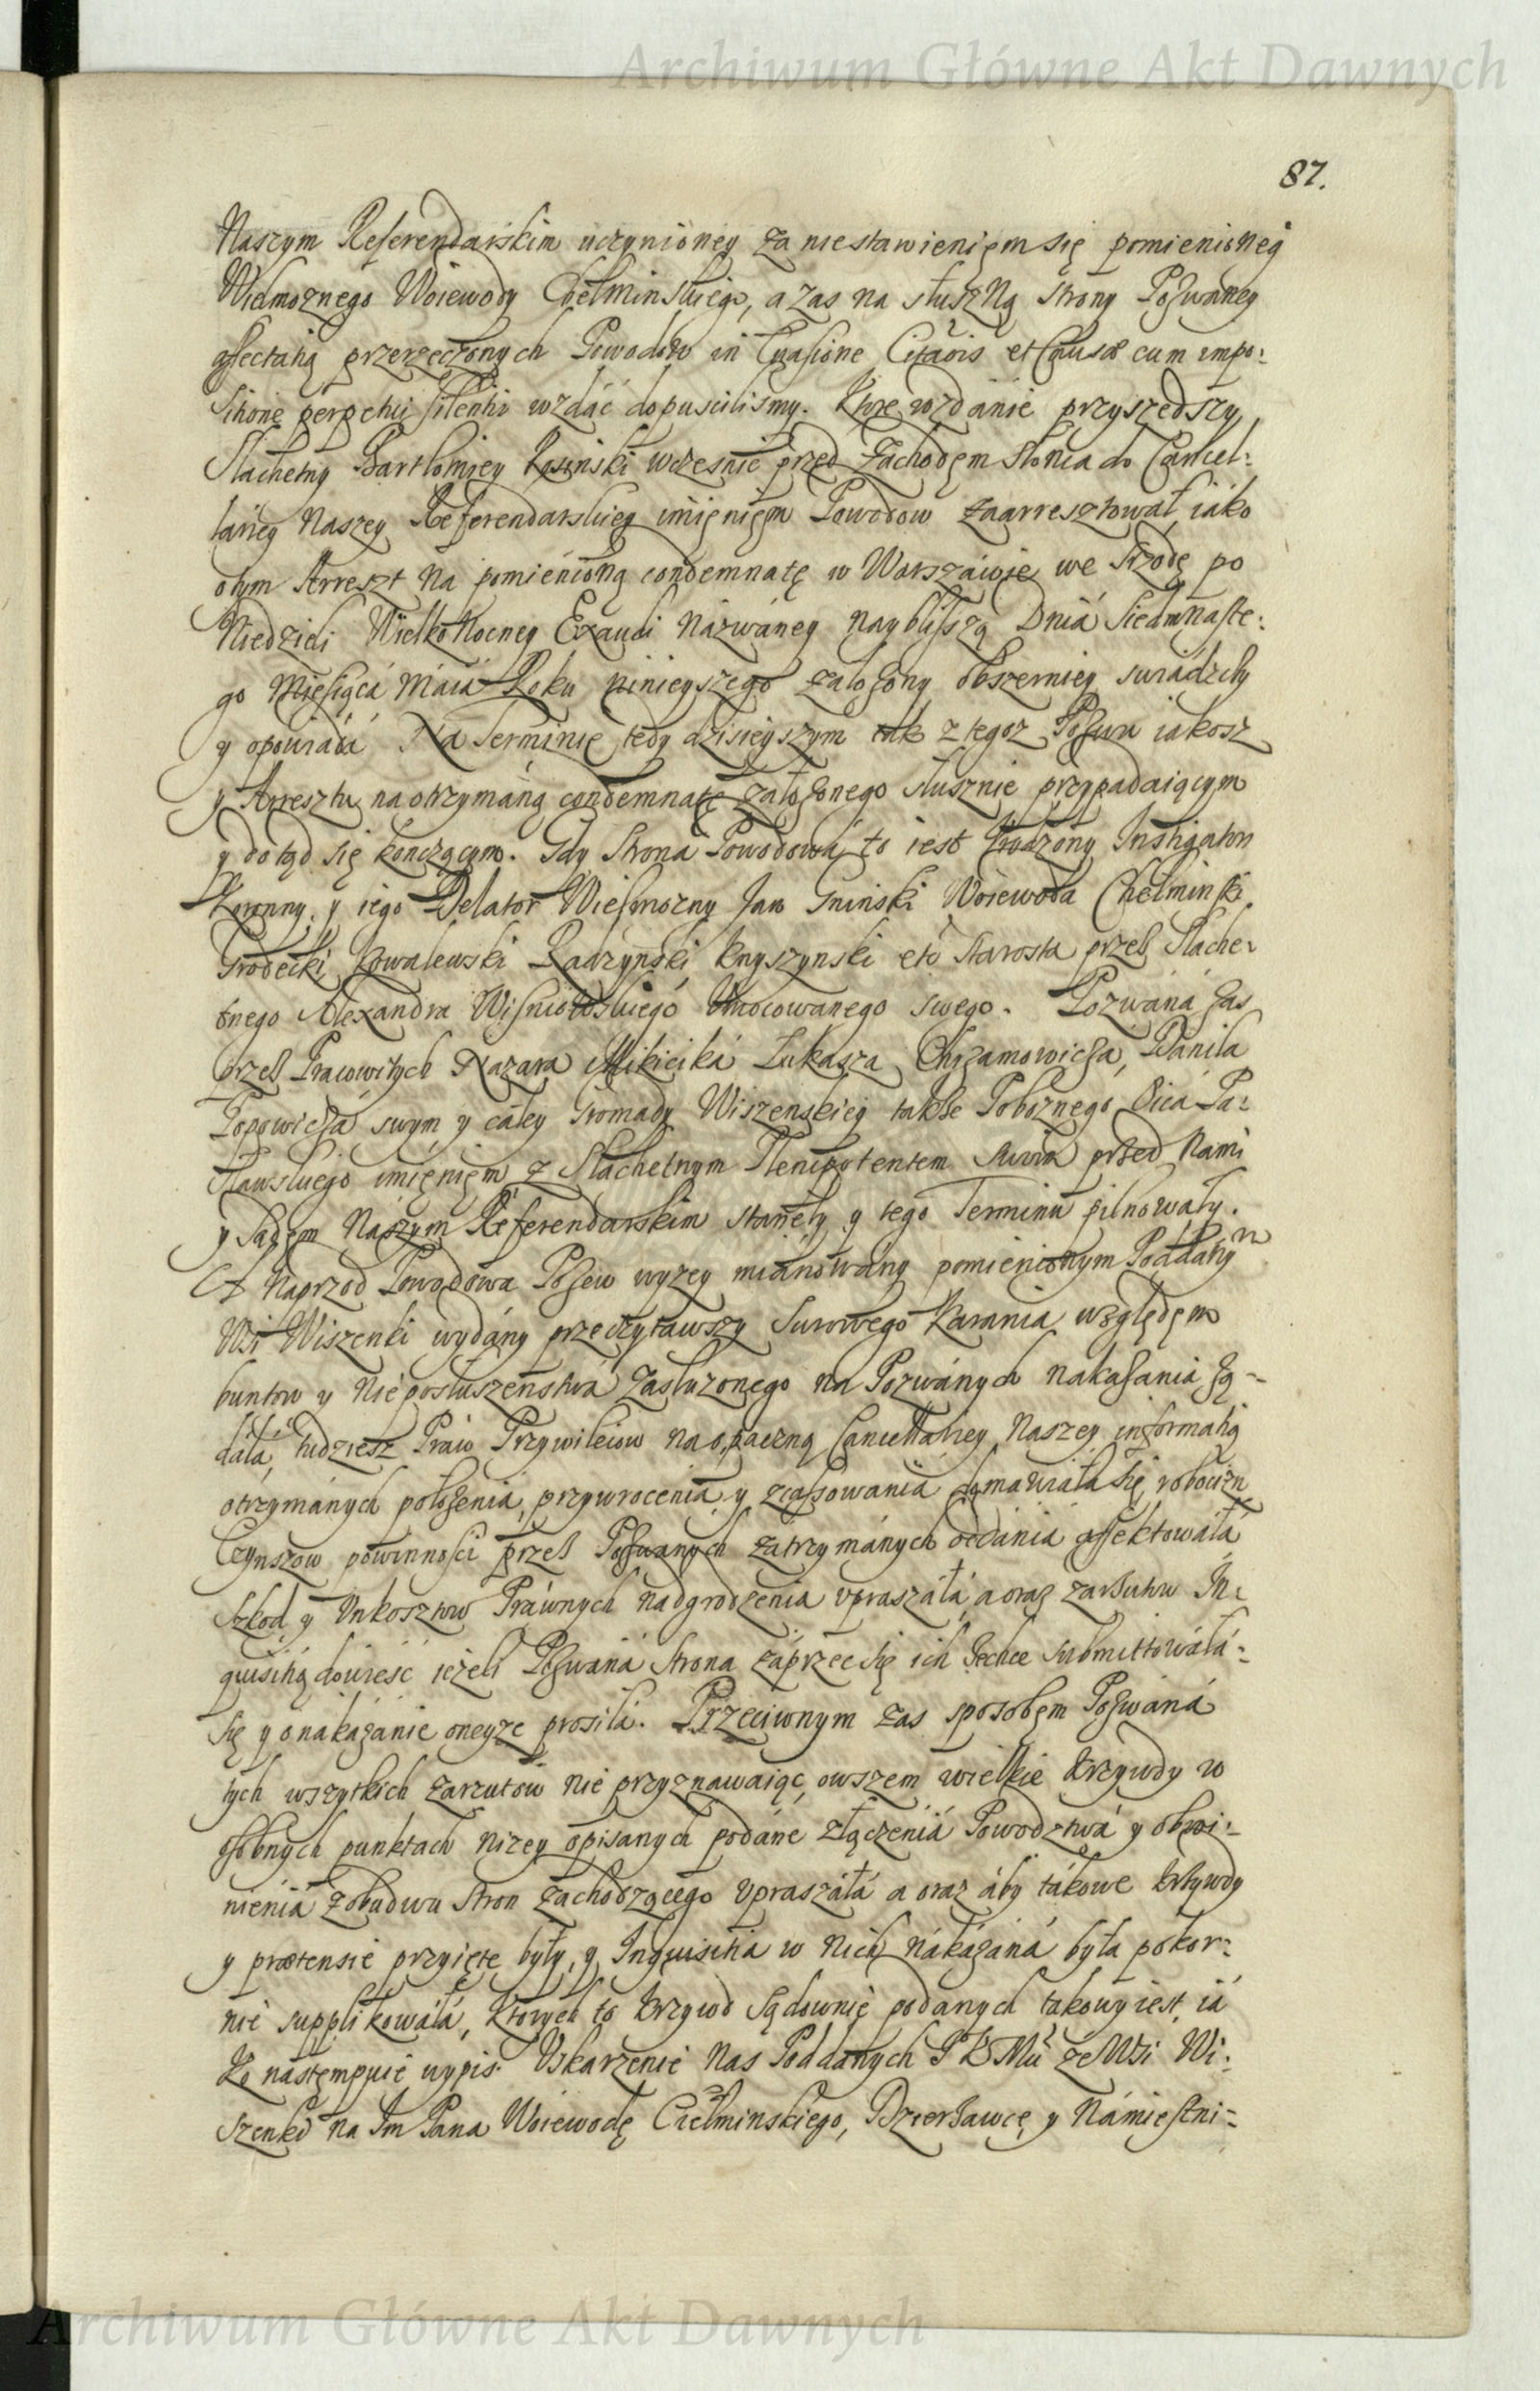 Archiwum Główne Akt Dawnych
87.
Naszym Referendarskim uczynioney za niestawienięm się pomienioneģ
Wielmoznego Woiewody Chełminskiego, a zas na słuszną strony Pozwaney
affectatią przerzeczonych Powodow in Evasione Citaõis et Causæ cum impo:
sitione perpetui silentij wzdáć dopuscilismy. Ktore wzdanie przyszedszy
Slachetny Bartłomiey wczesnie przed Zachodęm Słonca do Cancel:
lariey Naszey Referendarskiey imięnięm Powodow zaarresztował, iáko
otym Arreszt na pomienioną condemnatę w Warszáwie we Srzodę po
Niedzieli Wielkonocney Exaudi názwáney naybliższą Dniá Siedmnaste:
go Miesiącá Máiá Roku ninieyszego załozony obszerniey swiádczy
y opowiádá. Ná Terminie tedy dzisieyszym tak z tegoz Pozwu iakosz
y Arresztu na otrzymáną condemnatę załozonego słusznie przypadaiącym
y dotąd się kończącym. Gdy Strona Powodowá to iest Urodzony Instigator
Koronny, y iego Delator Wielmozny Jan Gninski Woiewoda Chełminski
Grodecki Kowalewski Radzynski Knyszynski etc Starosta przez Slache:
tnego Alexandra Wiśniowskiego Umocowanego swego. Pozwána zas
przez Pracowitych Nazara Mikicika Łukasza Danila
Popowicza swym y całey Gromady Wiszenskiey także Pobożnego Oica Pa:
sławskiego imięnięm z Slachetnym Plenipotentem swim przed Nami
y Sądem Naszym Referendarskim stanęły y tego Terminu pilnowały.
A naprzod Powodowa Pozew wyzey mianowány pomienionym Poddány m
Wsi Wiszenki wydány przeczytawszy surowego karania względęm
buntow y nieposłuszeństwá zasłuzonego na Pozwánych nakazania żą-
dáłá, tudziesz Praw Przywileiow na opaczną Cancellariey Naszey informatią
otrzymánych położenia, przywrocenia y zcassowania domawiała się, robocizn
Czynszow powinności przez Pozwanych zátrzymánych oddánia affektowáłá
Szkod y Unkosztow Práwnych nadgrodzenia upraszáłá, a oraz zarzutow In:
quisitią dowieść ieżeli Pozwáná Strona záprzeć się ich zechce submittowáłá:
się y o nakázánie oneyze prosiłá. Przeciwnym zas sposobęm Pozwáná
tych wszytkich zarzutow nie przyznawaiąc, owszem wielkie krzywdy w
osobnych punktach nizey opisanych podáne złączeniá Powodztwá y obwi:
nienia z obudwu stron zachodzącego upraszáłá a oraz áby tákowe krzywdy
y prætensie przyięte były, y Inquisitia w nich nákázáná była pokor:
nie supplikowáłá, ktorych to krzywd sądownie podanych takowy iest iá
ko następuie wypis. Uskarzenie nas Poddanych J K Mći ze Wsi Wi:
szenki na Jm Pana Woiewodę Chełminskiego, Dzierżawcę y Námiestni:
Archiwum Główne Akt Dawnych